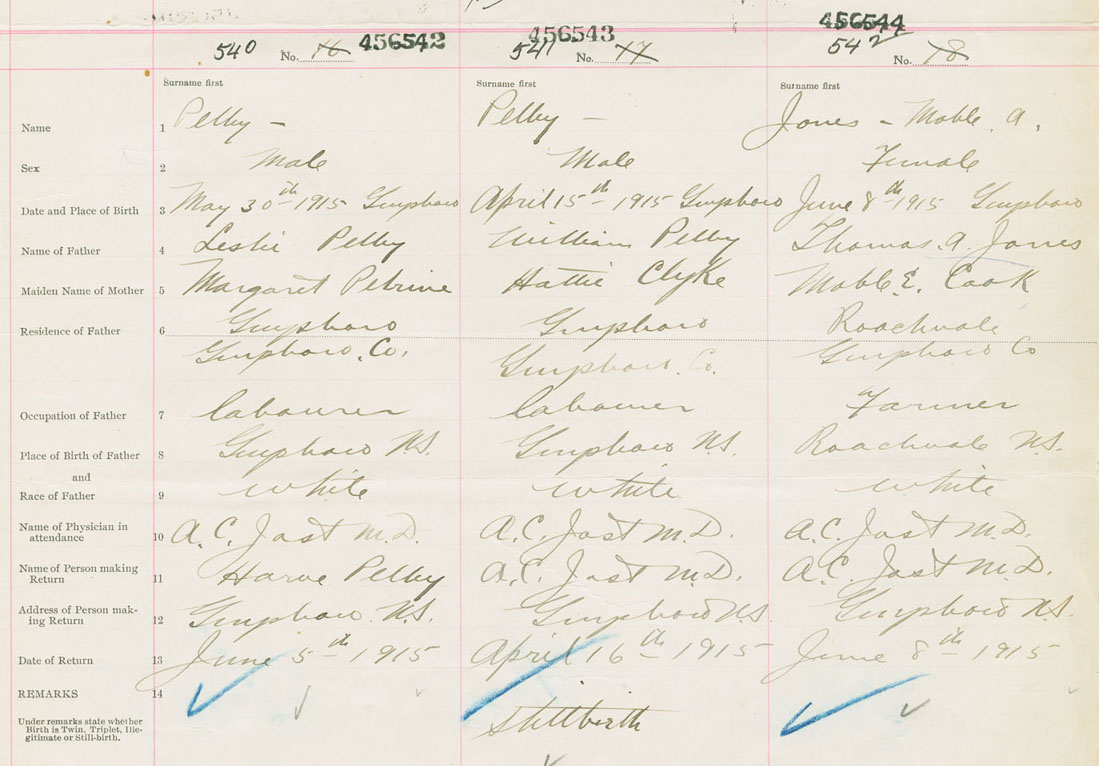 456542 456543 456544
540 No. 76 541 No. 77 542 No. 78
Surname first Surname first Surname first
Name 1 Pelby – Pelby – Jones – Mable. A.
Sex 2 Male Male Female
Date and Place of Birth 3 May 30th 1915 Guysboro April 15th 1915 Guysboro June 8th 1915 Guysboro
Name of Father 4 Leslie Pelby William Pelby Thomas. A. Jones
Maiden Name of Mother 5 Margaret Petrine Hattie Clyke Mable E. Cook
Residence of Father 6 Guysboro Guysboro Roachvale
Guysboro. Co. Guysboro. Co. Guysboro Co
Occupation of Father 7 labourer labourer Farmer
Place of Birth of Father 8 Guysboro N.S. Guysboro N.S. Roachvale N.S.
and
Race of Father 9 white white white
Name of Physician in
attendance 10 A. C. Jost M.D. A. C. Jost M.D. A. C. Jost M.D.
Name of Person making
Return 11 Pelby A. C. Jost M.D. A. C. Jost M.D.
Address of Person mak-
ing Return 12 Guysboro N.S. Guysboro NS Guysboro N.S.
Date of Return 13 June 5th 1915 April 16th 1915 June 8th 1915
REMARKS 14
Under remarks state whether
Birth is Twin, Triplet, Ille-
gitimate or Still-birth.
Stillbirth